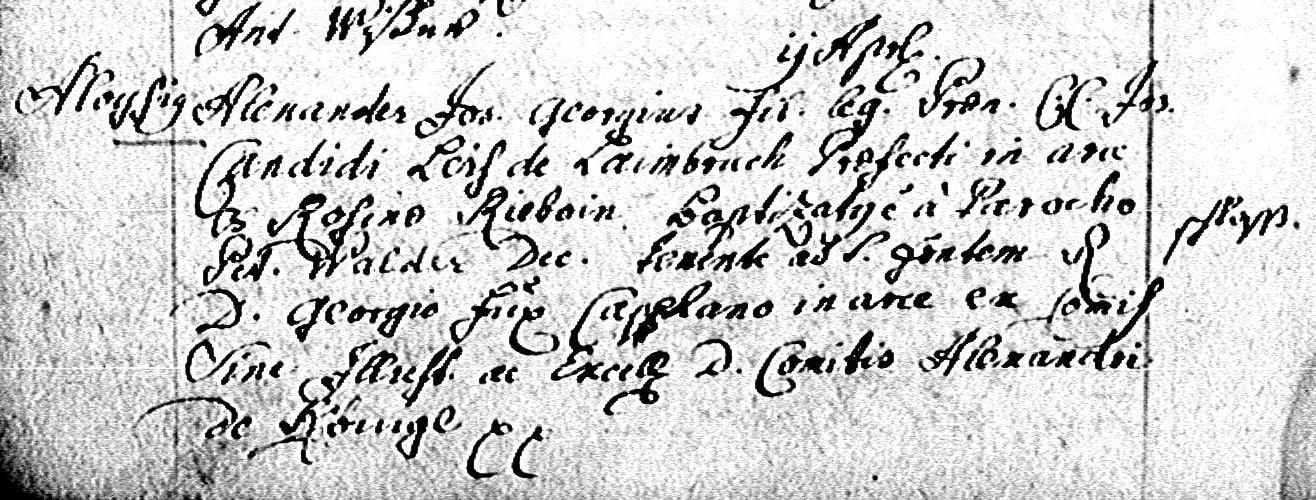 Ant. Wißner.
ij Apri.
Aloysig Alexander Jos. Georgius Fil. leg. Præn. Cl. Jos.
Candidi Leis de Laimbruch Præfecti in arce
& Rosina Rieboin Baptizatg e à Parocho
Pet. Walder Dec. tenente ad S. fontem R
schloss.
D. Georgio Füx Capellano in arce ex comis
sine Illust. ac Excell. D. Comitis Alexandri
de Könige